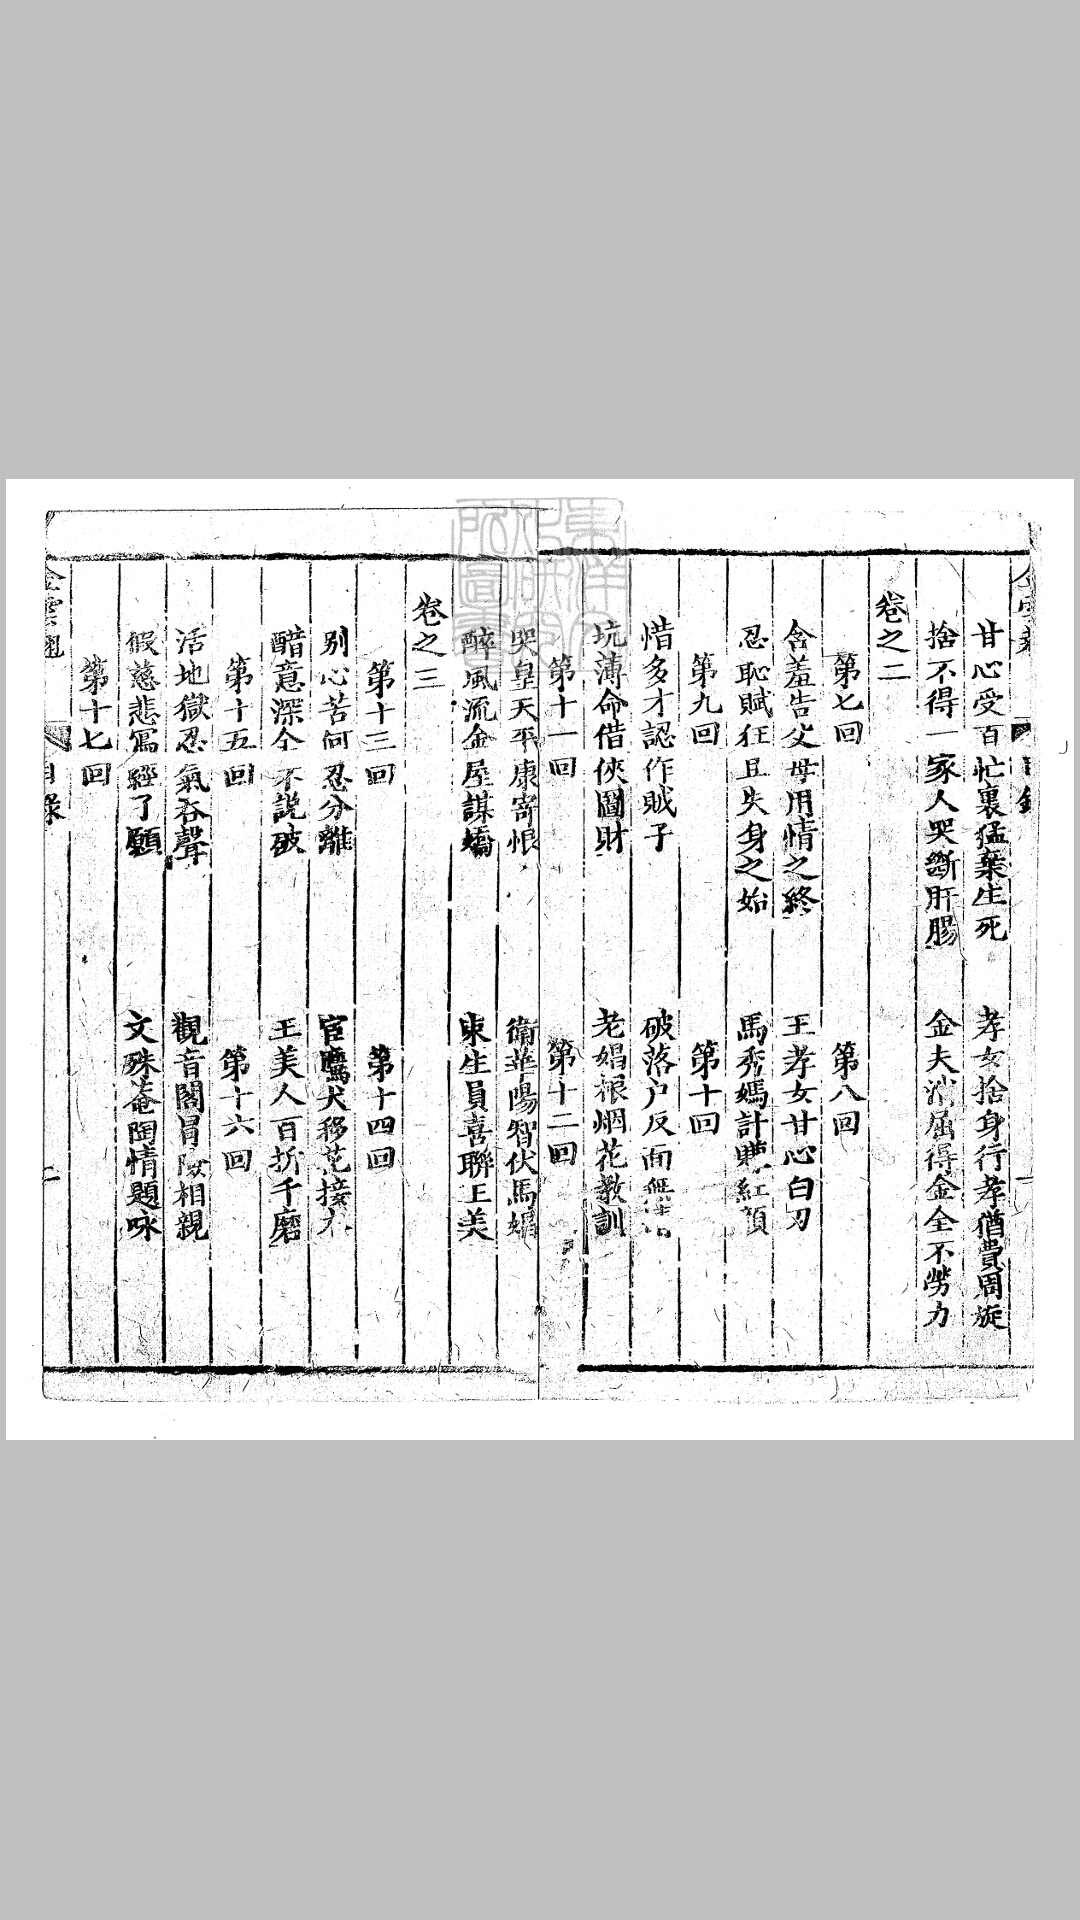 甘心受百忙裏猛棄生死
孝女捨身行孝猶費周旋
捨不得一家人哭斷肝腸
金夫消屈得金全不勞力
卷之二
第七回
第八回
含羞告父母用情之終
王孝女甘心白刃
忍恥賦狂且失身之始
馬秀媽計賺紅顏
第九回
第十回
惜多才認作賊子
破落户反面無情
坑薄命借俠圖財
老娼根烟花教訓
第十一回
第十二回
哭皇天平康寄恨
衛華陽智伏馬娼
醉風流金屋謀嬌
束生員喜聯王美
卷之三
第十三回
第十四回
别心苦何忍分離
官鷹犬移花接木
醋意深全不説破
王美人百折千磨
第十五回
第十六回
活地獄忍氣吞聲
觀音閣冒險相親
假慈悲寫經了願
文殊菴陶情題咏
第十七回
金雲翹
目錄
二